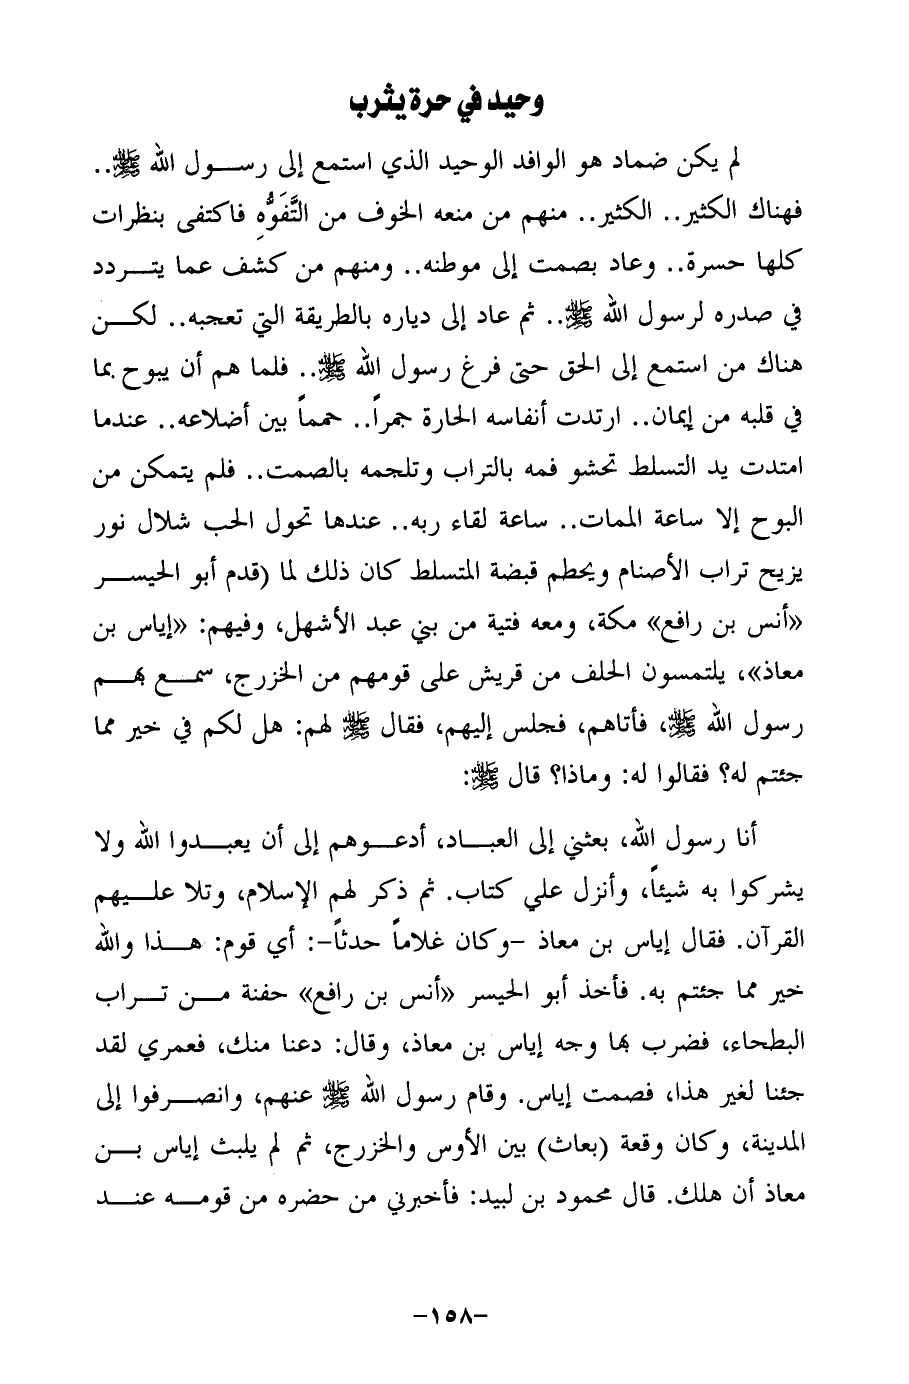 وحيد في حرة يثرب
لم يكن ضماد هو الوافد الوحيد الذي استمع إلى رسول الله ﷺ..
فهناك الكثير.. الكثير.. منهم من منعه الخوف من التَّفَوُّهِ فاكتفى بنظرات
كلها حسرة.. وعاد بصمت إلى موطنه.. ومنهم من كشف عما يتردد
في صدره لرسول الله ﷺ.. ثم عاد إلى دياره بالطريقة التي تعجبه.. لكن
هناك من استمع إلى الحق حتى فرغ رسول الله ﷺ.. فلما هم أن يبوح بما
في قلبه من إيمان.. ارتدت أنفاسه الحارة جمراً.. حمماً بين أضلاعه.. عندما
امتدت يد التسلط تحشو فمه بالتراب وتلجمه بالصمت.. فلم يتمكن من
البوح إلا ساعة الممات.. ساعة لقاء ربه.. عندها تحول الحب شلال نور
يزيح تراب الأصنام ويحطم قبضة المتسلط كان ذلك لما (قدم أبو الحيسر
«أنس بن رافع» مكة، ومعه فتية من بني عبد الأشهل، وفيهم: «إياس بن
معاذ»، يلتمسون الحلف من قريش على قومهم من الخزرج، سمع بهم
رسول الله ﷺ، فأتاهم، فجلس إليهم، فقال ﷺ لهم: هل لكم في خير مما
جئتم له؟ فقالوا له: وماذا؟ قال ﷺ:
أنا رسول الله، بعثني إلى العباد، أدعوهم إلى أن يعبدوا الله ولا
يشركوا به شيئاً، وأنزل علي كتاب. ثم ذكر لهم الإسلام، وتلا عليهم
القرآن. فقال إياس بن معاذ -وكان غلاماً حدثاً-: أي قوم: هذا والله
خير مما جئتم به. فأخذ أبو الحيسر «أنس بن رافع» حفنة من تراب
البطحاء، فضرب بها وجه إياس بن معاذ، وقال: دعنا منك، فعمري لقد
جئنا لغير هذا، فصمت إياس. وقام رسول الله ﷺ عنهم، وانصرفوا إلى
المدينة، وكان وقعة (بعاث) بين الأوس والخزرج، ثم لم يلبث إياس بن
معاذ أن هلك. قال محمود بن لبيد: فأخبرني من حضره من قومه عند
-١٥٨-